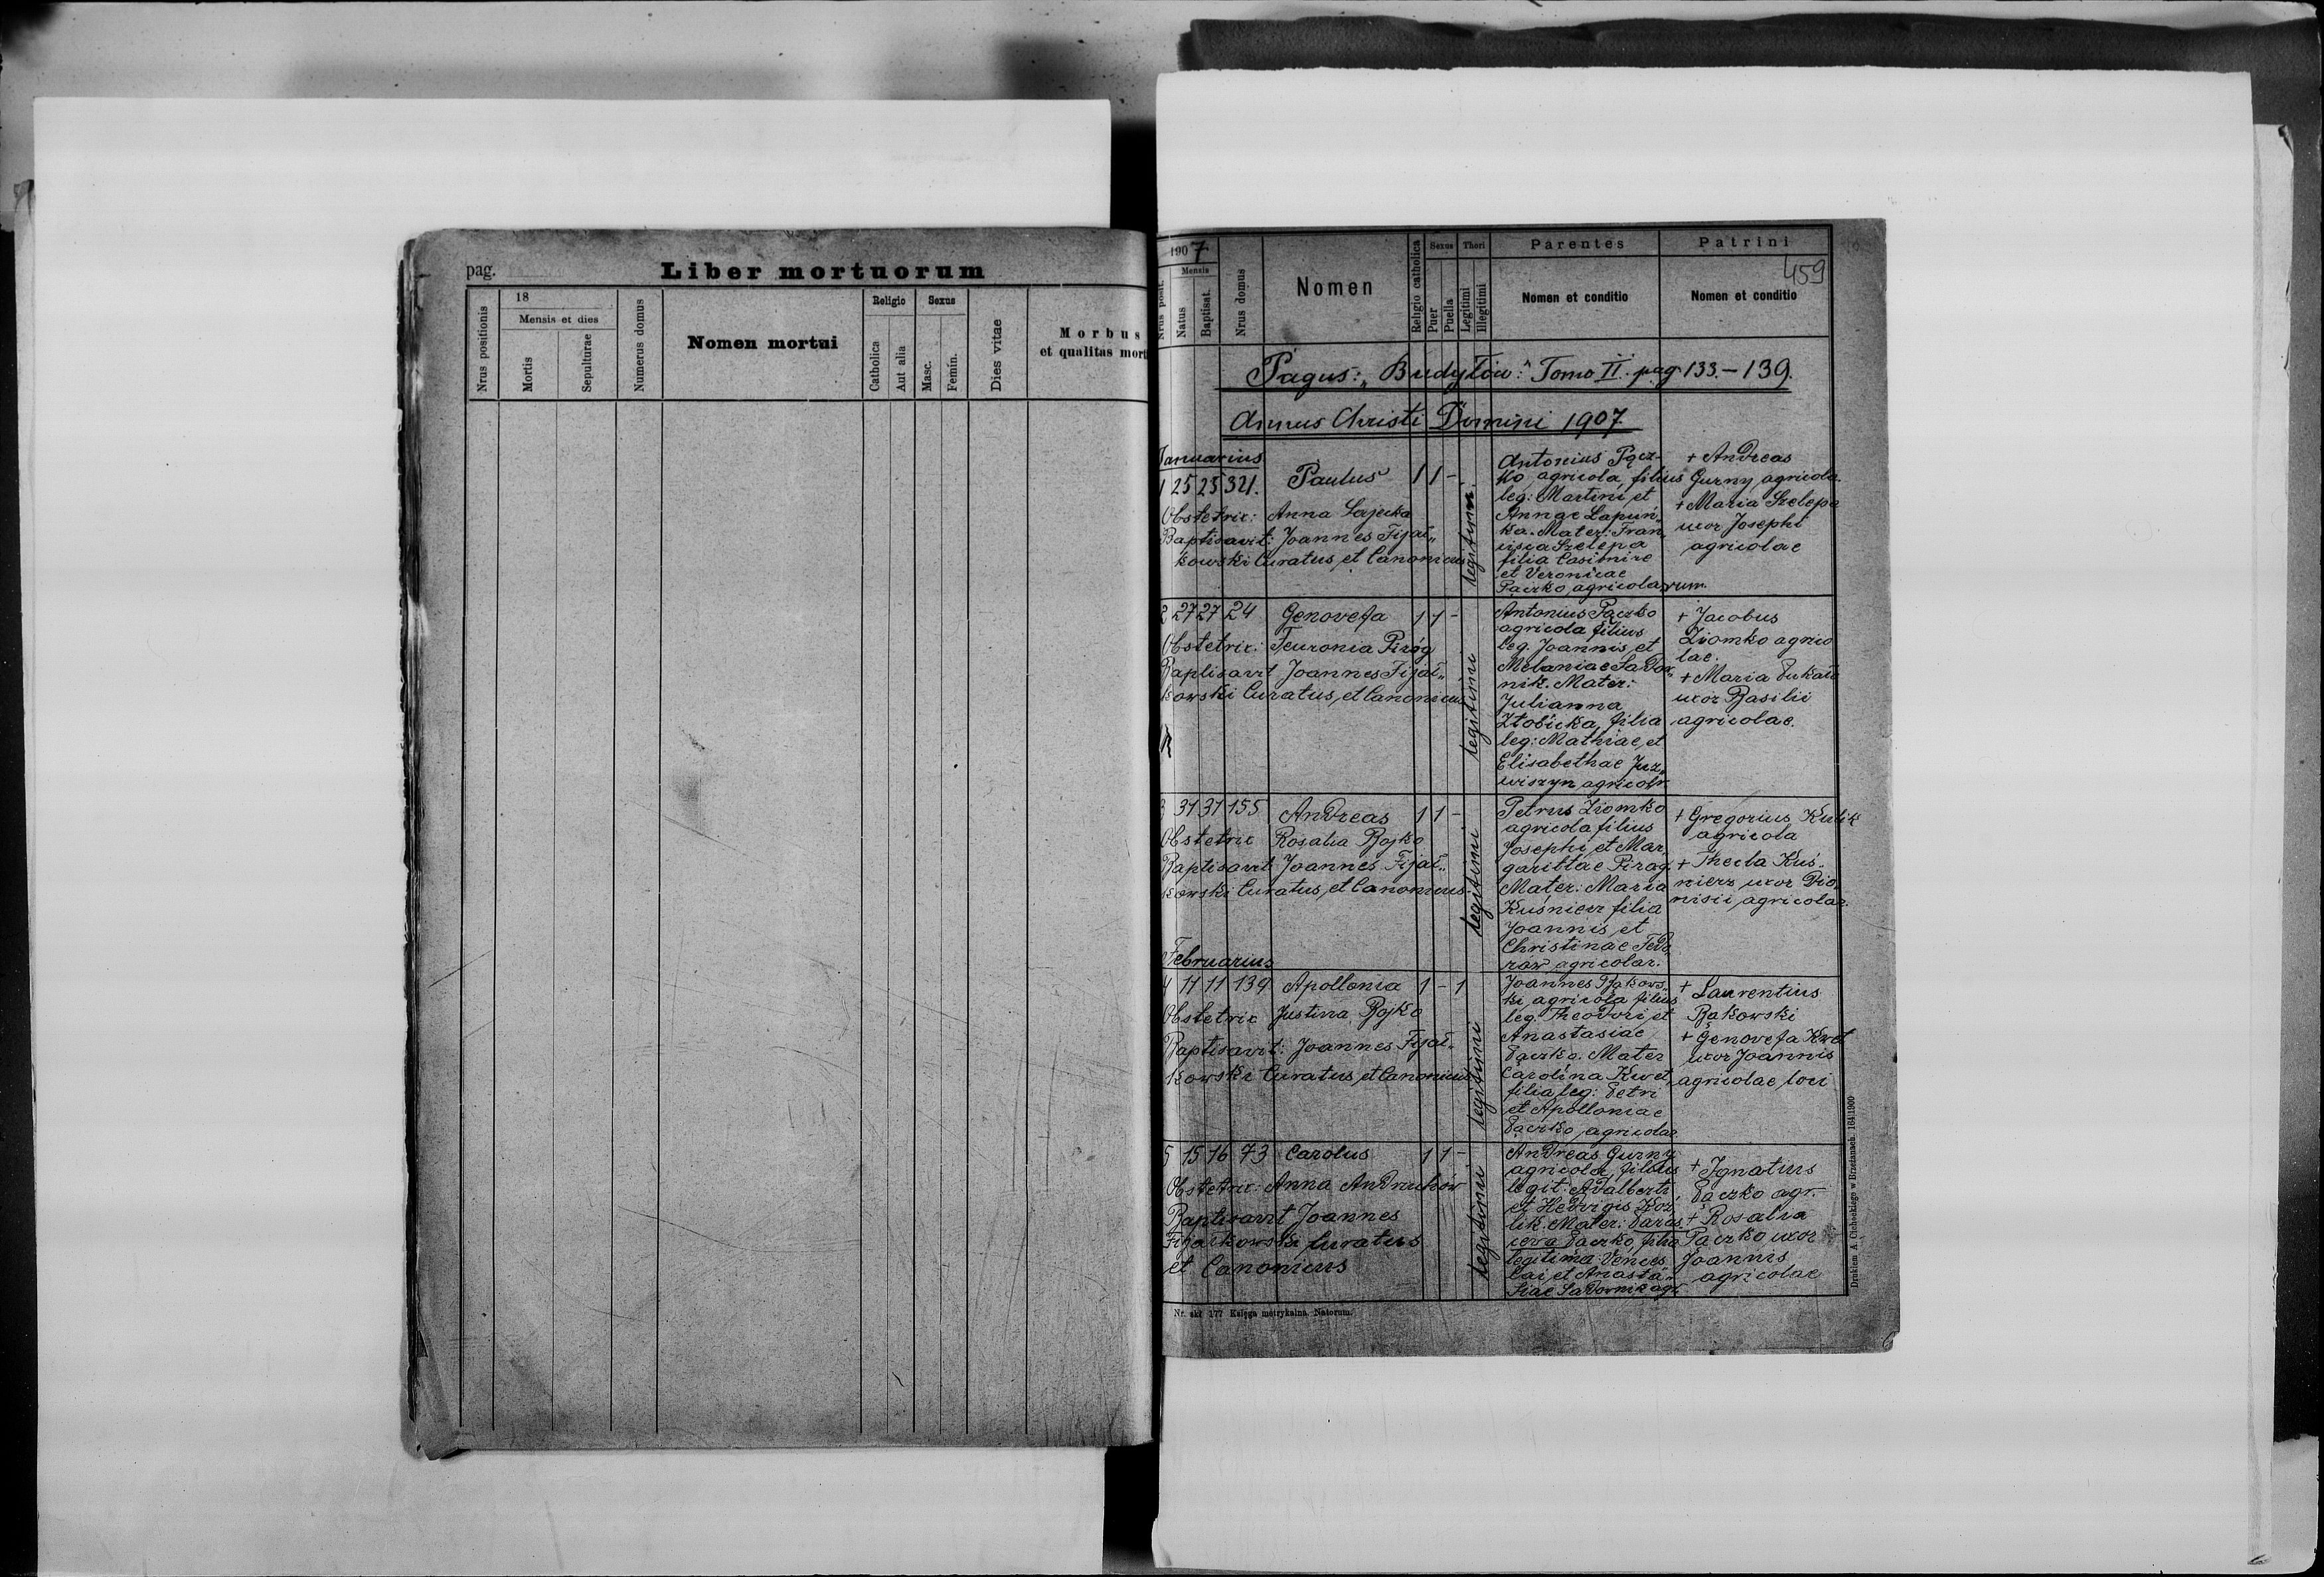 pag.
Liber mortuorum
Nrus positionis
18
Mensis et dies
Mortis
Sepulturae
Numerus domus
Nomen mortui
Religio
Catholica
Aut alia
Sexus
Masc.
Femin.
Dies vitae
Morbus
et qualitas mort
1907
Mensis
Nrus posit.
Natus
Baptisat.
Nrus domus
Nomen
Religio catholica
Sexus
Puer
Puella
Thori
Legitimi
Illegitimi
Parentes
Nomen et conditio
Patrini
459
Nomen et conditio
Pagus: „Budyłów:" Tomo II. pag. 133.-139.
Annus Christi Domini 1907.
Januarius
1 25 25 321. Paulus 1 1 -
Obstetrix: Anna
Baptisavit: Joannes Fijał„
kowski Curatus et Canonicus
legitimi
Antonius Pącz-
ko, agricola, filius
leg: Martini et
Annae Łapuń„
ka. Mater: Fran„
cisca Szelepa
filia Casimire
et Veronicae
Pączko agricolarum.
+ Andreas
Gurny agricola.
+ Maria Szelepa
uxor Josephi
agricolae
2 27 27 24 Genovefa 1 1 -
Obstetrix: Feuronia Piróg
Baptisavit Joannes Fijał„
kowski Curatus, et Canonicus
legitimi
Antonius Pączko
agricola filius
leg. Joannis et
Melaniae Sadow„
nik. Mater:
Julianna
Złobicka, filia
leg: Mathiae, et
Elisabethae Juz„
wiszyn agricolr.
+ Jacobus
Ziomko agrico
lae.
+ Maria
uxor Basilii
agricolae.
3 31 31 155 Andreas 1 1 -
Obstetrix Rosalia Bojko
Baptisavit Joannes Fijał„
kowski Curatus, et Canonicus
legitimi
Petrus Ziomko
agricola filius
Josephi, et Mar„
garittae Pirog
Mater: Maria
Kuśnierz filia
Joannis et
Christinae Fedo„
rów agricolar.
+ Gregorius Kulik
agricola
+ Thecla Kuś„
nierz uxor Dio„
nisii, agricolae.
Februarius
4 11 11 139 Apollonia 1 - 1
Obstetrix Justina Bojko
Baptisavit: Joannes Fijał„
kowski Curatus, et Canonicus
legitimi
Joannes Bakows„
ki, agricola filius
leg. Theodori et
Anastasiae
Pączko. Mater
Carolina Kwet,
filia leg: Petri
et Apolloniae
Pączko, agricolar.
+ Laurentius
Bakowski
+ Genovefa Kwet
uxor Joannis
agricolae loci
5 15 16 73 Carolus 1 1 -
Obstetrix: Anna Andruchów
Baptisavit Joannes
Fijałkowski Curatus
et Canonicus
legitimi
Andreas Gurny
agricola, filius
legit: Adalberti,
et Hedvigis Koz„
lik. Mater: Paras„
ceva Pączko, filia
legitima: Vences„
lai, et Anasta„
siae Sadownik agr.
+ Ignatius
Pączko agr.
+ Rosalia
Pączko uxor
Joannis
agricolae
Nr. skł. 177 Księga metrykalna. Natorum.
Drukiem A. Cichockiego w Brzeżanach. 164/1900